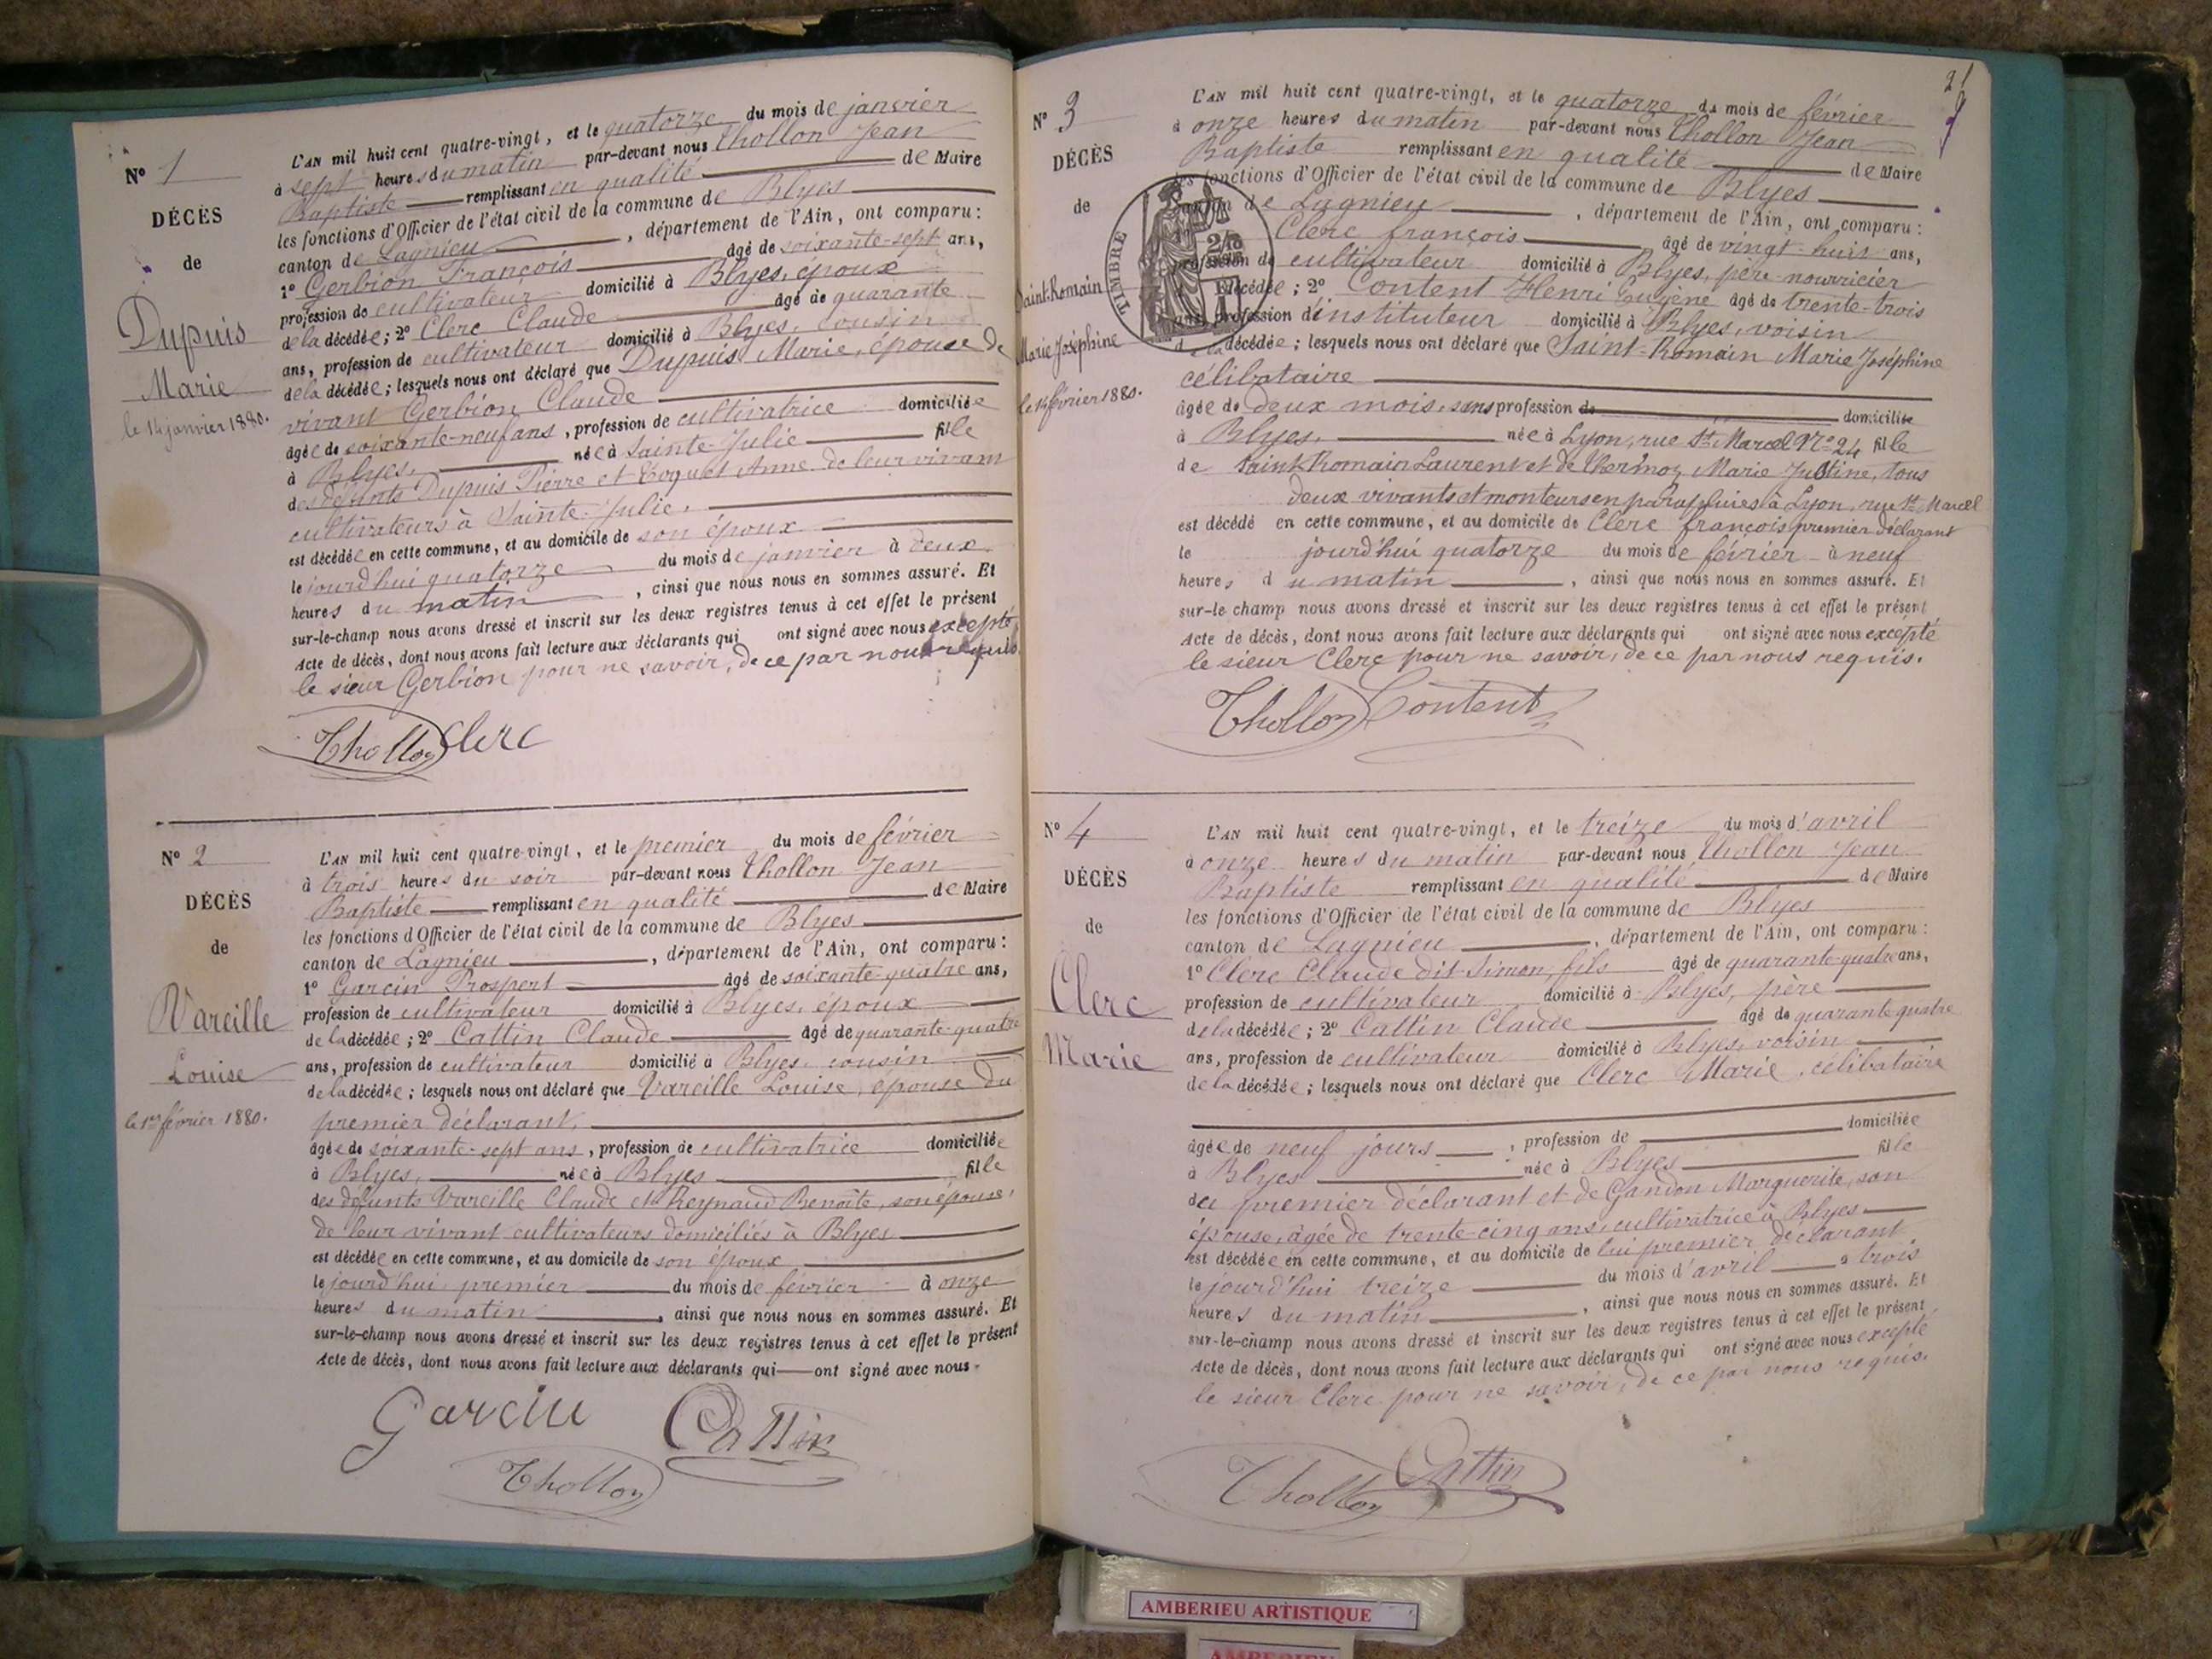 N° 1
DÉCÈS
de
Dupuis
Marie
le 14 janvier 1880.
L'AN mil huit cent quatre-vingt, et le quatorze du mois de janvier
à sept heures du matin par-devant nous Thollon Jean
Baptiste remplissant en qualité de Maire
les fonctions d'Officier de l'état civil de la commune de Blyes
canton de Lagnieu, département de l'Ain, ont comparu:
1° Gerbion François âgé de soixante-sept ans,
profession de cultivateur domicilié à Blyes, époux
de la décédée; 2° Clerc Claude âgé de quarante
ans, profession de cultivateur domicilié à Blyes, cousin
de la décédée; lesquels nous ont déclaré que Dupuis Marie, épouse de
vivant Gerbion Claude
âgée de soixante-neuf ans, profession de cultivatrice domiciliée
à Blyes, née à Sainte-Julie fille
des défunts Dupuis Pierre et Anne de leur vivant
cultivateurs à Sainte-Julie,
est décédée en cette commune, et au domicile de son époux
le jourd'hui quatorze du mois de janvier à deux
heures du matin, ainsi que nous nous en sommes assuré. Et
sur-le-champ nous avons dressé et inscrit sur les deux registres tenus à cet effet le présent
Acte de décès, dont nous avons fait lecture aux déclarants qui ont signé avec nous excepté
le sieur Gerbion pour ne savoir, de ce par nous requis
Thollon Clerc
N° 2
DÉCÈS
de
Vareille
Louise
le 1er février 1880.
L'AN mil huit cent quatre-vingt, et le premier du mois de février
à trois heures du soir par-devant nous Thollon Jean
Baptiste remplissant en qualité de Maire
les fonctions d'Officier de l'état civil de la commune de Blyes
canton de Lagnieu, département de l'Ain, ont comparu:
1° Garcin Prospert âgé de soixante-quatre ans,
profession de cultivateur domicilié à Blyes, époux
de la décédée; 2° Cattin Claude âgé de quarante-quatre
ans, profession de cultivateur domicilié à Blyes, cousin
de la décédée; lesquels nous ont déclaré que Vareille Louise, épouse du
premier déclarant,
âgée de soixante-sept ans, profession de cultivatrice domiciliée
à Blyes, née à Blyes fille
des défunts Vareille Claude et Reynaud Benoîte, son épouse,
de leur vivant cultivateurs domiciliés à Blyes
est décédée en cette commune, et au domicile de son époux
le jourd'hui premier du mois de février à onze
heures du matin, ainsi que nous nous en sommes assuré. Et
sur-le-champ nous avons dressé et inscrit sur les deux registres tenus à cet effet le présent
Acte de décès, dont nous avons fait lecture aux déclarants qui ont signé avec nous.
Garcin Cattin
Thollon
N° 3
DÉCÈS
de
Saint-Romain
Marie Joséphine
le 14 février 1880.
TIMBRE
L'AN mil huit cent quatre-vingt, et le quatorze du mois de février
à onze heures du matin par-devant nous Thollon Jean
Baptiste remplissant en qualité de Maire
les fonctions d'Officier de l'état civil de la commune de Blyes
canton de Lagnieu, département de l'Ain, ont comparu:
Clerc françois âgé de vingt-huit ans,
profession de cultivateur domicilié à Blyes, père nourricier
décédée; 2° Content Henri Eugène âgé de trente-trois
ans, profession d'instituteur domicilié à Blyes, voisin
de la décédée; lesquels nous ont déclaré que Saint-Romain Marie Joséphine
célibataire
âgée de deux mois, sans profession de domiciliée
à Blyes, née à Lyon, rue St Marcel N° 24 fille
de Saint-Romain Laurent et de Thermoz Marie Justine, tous
deux vivants et monteurs en parapluies à Lyon, rue St Marcel
est décédé en cette commune, et au domicile de Clerc françois premier déclarant
le jourd'hui quatorze du mois de février à neuf
heures du matin, ainsi que nous nous en sommes assuré. Et
sur-le champ nous avons dressé et inscrit sur les deux registres tenus à cet effet le présent
Acte de décès, dont nous avons fait lecture aux déclarants qui ont signé avec nous excepté
le sieur Clerc pour ne savoir, de ce par nous requis.
Thollon Content
N° 4
DÉCÈS
de
Clerc
Marie
L'AN mil huit cent quatre-vingt, et le treize du mois d'avril
à onze heures du matin par-devant nous Thollon Jean
Baptiste remplissant en qualité de Maire
les fonctions d'Officier de l'état civil de la commune de Blyes
canton de Lagnieu, département de l'Ain, ont comparu:
1° Clerc Claude dit Simon, fils âgé de quarante-quatre ans,
profession de cultivateur domicilié à Blyes, père
de la décédée; 2° Cattin Claude âgé de quarante quatre
ans, profession de cultivateur domicilié à Blyes, voisin
de la décédée; lesquels nous ont déclaré que Clerc Marie, célibataire
âgée de neuf jours, profession de domiciliée
à Blyes née à Blyes fille
du premier déclarant et de Gandon Marguerite, son
épouse, âgée de trente-cinq ans, cultivatrice à Blyes
est décédée en cette commune, et au domicile de lui premier déclarant
le jourd'hui treize du mois d'avril à trois
heures du matin, ainsi que nous nous en sommes assuré. Et
sur-le-champ nous avons dressé et inscrit sur les deux registres tenus à cet effet le présent
Acte de décès, dont nous avons fait lecture aux déclarants qui ont signé avec nous excepté
le sieur Clerc pour ne savoir, de ce par nous requis.
Thollon Cattin
AMBERIEU ARTISTIQUE
AMBERIEU